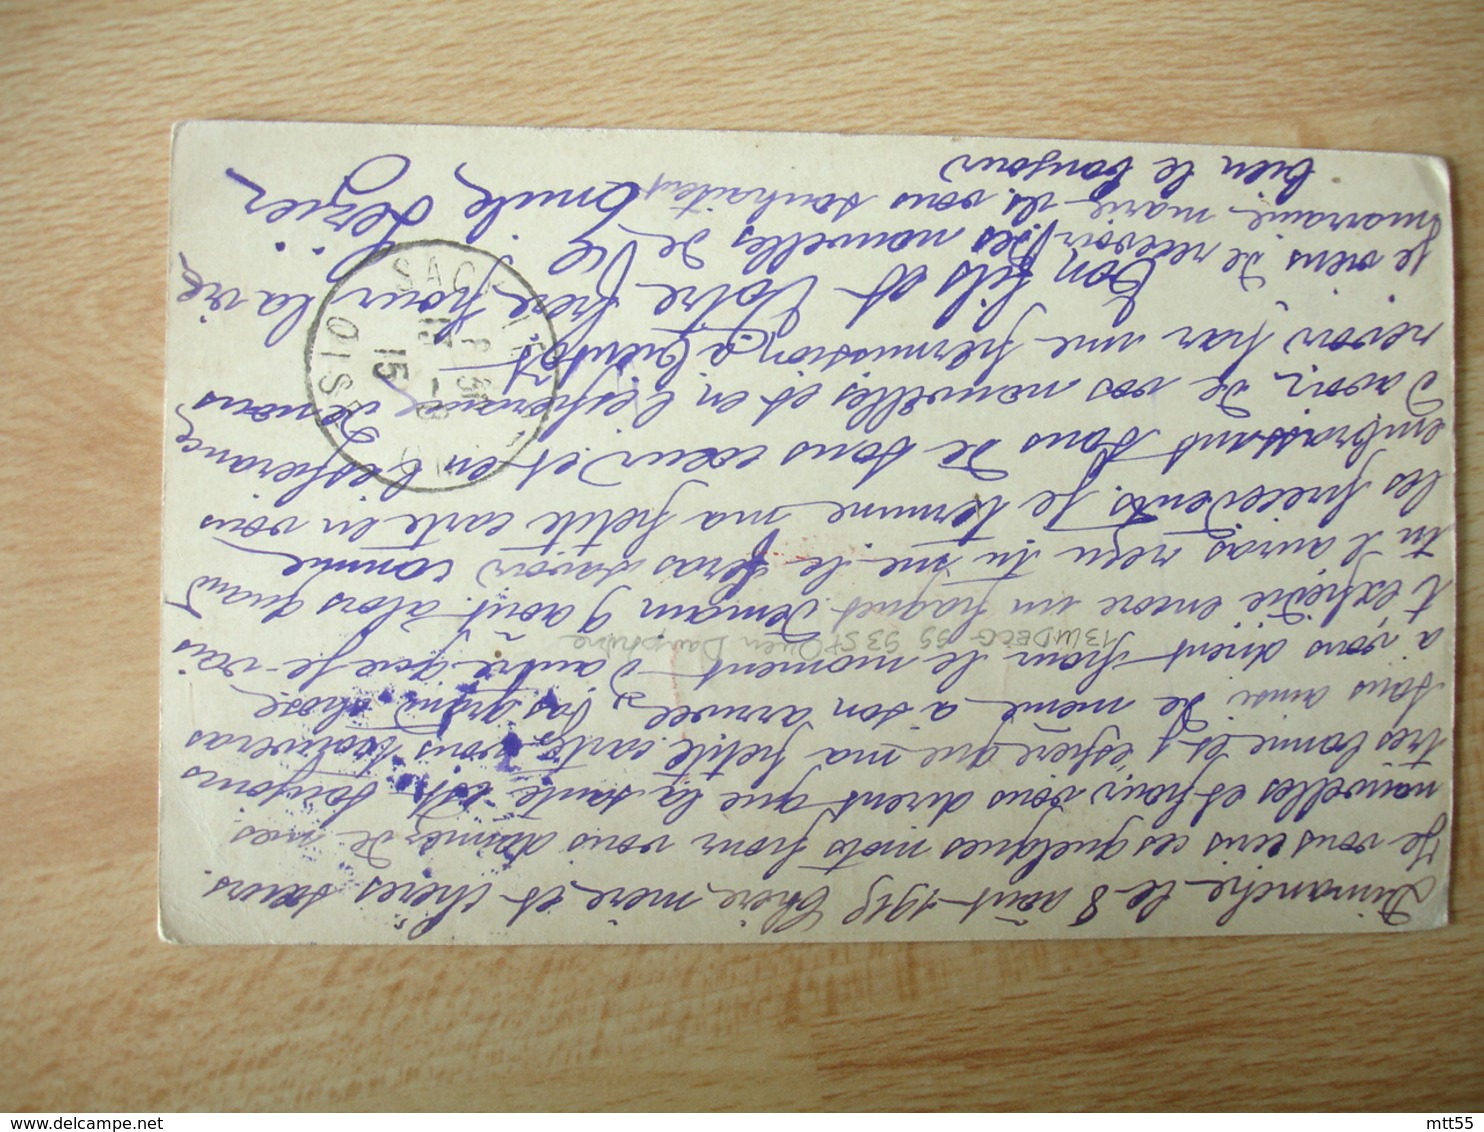 Dimanche le 8 août 1915 Chère mère et chères sœurs
Je vous ecris ces quelques mots pour vous donner de mes
nouvelles et pour vous dirent que la santé est toujours
tres bonne et j'espere que ma petite carte vous trouveras
tous ainsi de meme a son arrivee, Pas grand chose
a vous dirent pour le moment d'autre que je vais
t'expedie encore un paquet demain 9 août alors quand
tu l'auras reçu tu me le feras savoir comme
les precedents. Je termine ma petite carte en vous
embrassant tous de tous cœur et en l'esperance
d'avoir de vos nouvelles et en l'esperance de nous
revoir par une permission a bientot
Ton fils et Votre frère pour la vie
Emile Lezier
Je viens de recevoir des nouvelles de
marraine marie ils vous souhaitent
bien le bonjour
SACY
OISE
15
13 INDECG 99 93 St Ouen Dauphine
mtt55